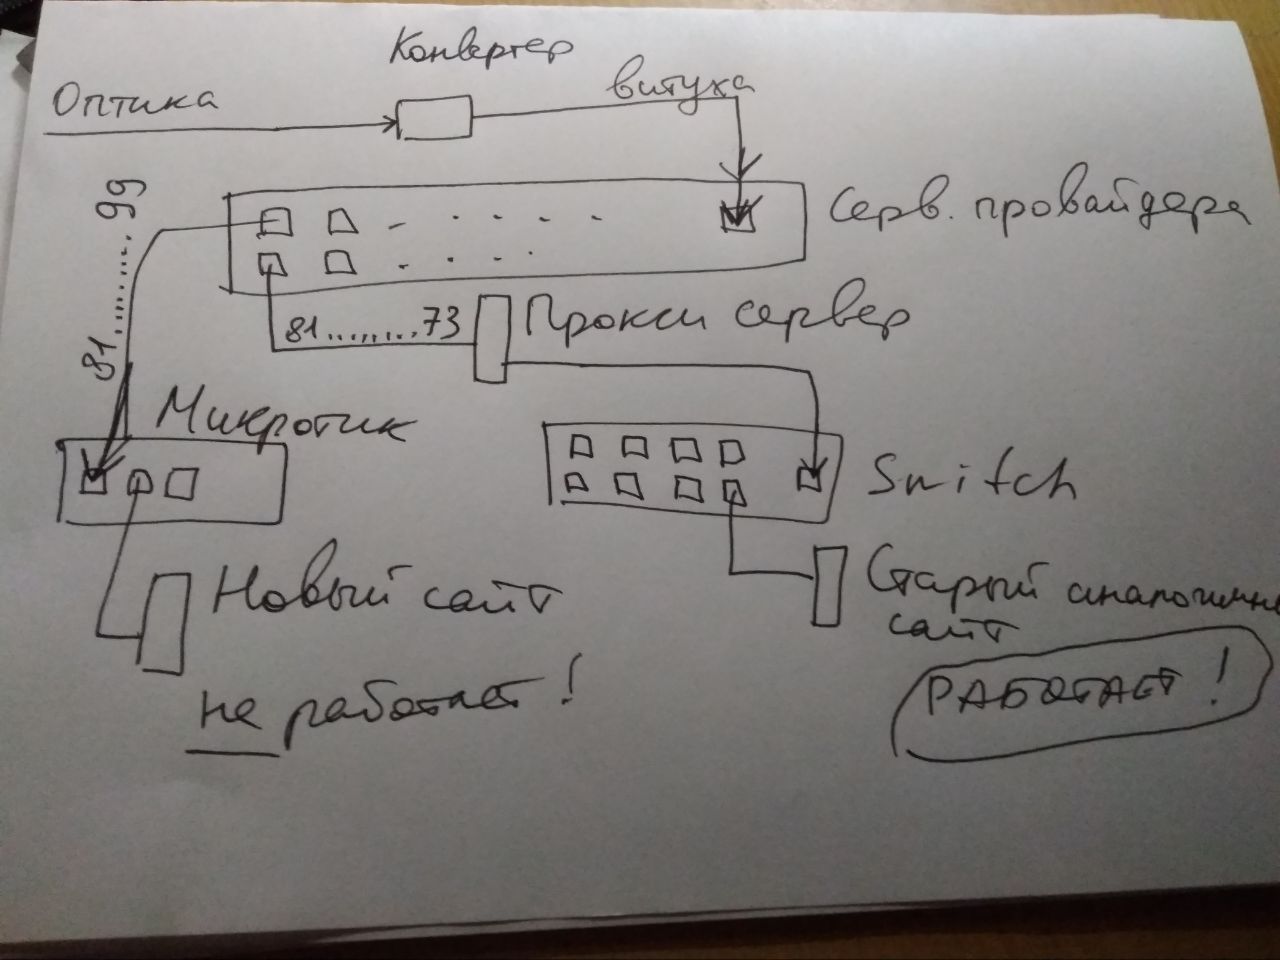 Конвертер
Оптика
витуха
81........99
Серв. провайдера
81.........73
Прокси сервер
Микротик
Switch
Новый сайт
не работает!
Старый
сайт
РАБОТАЕТ!